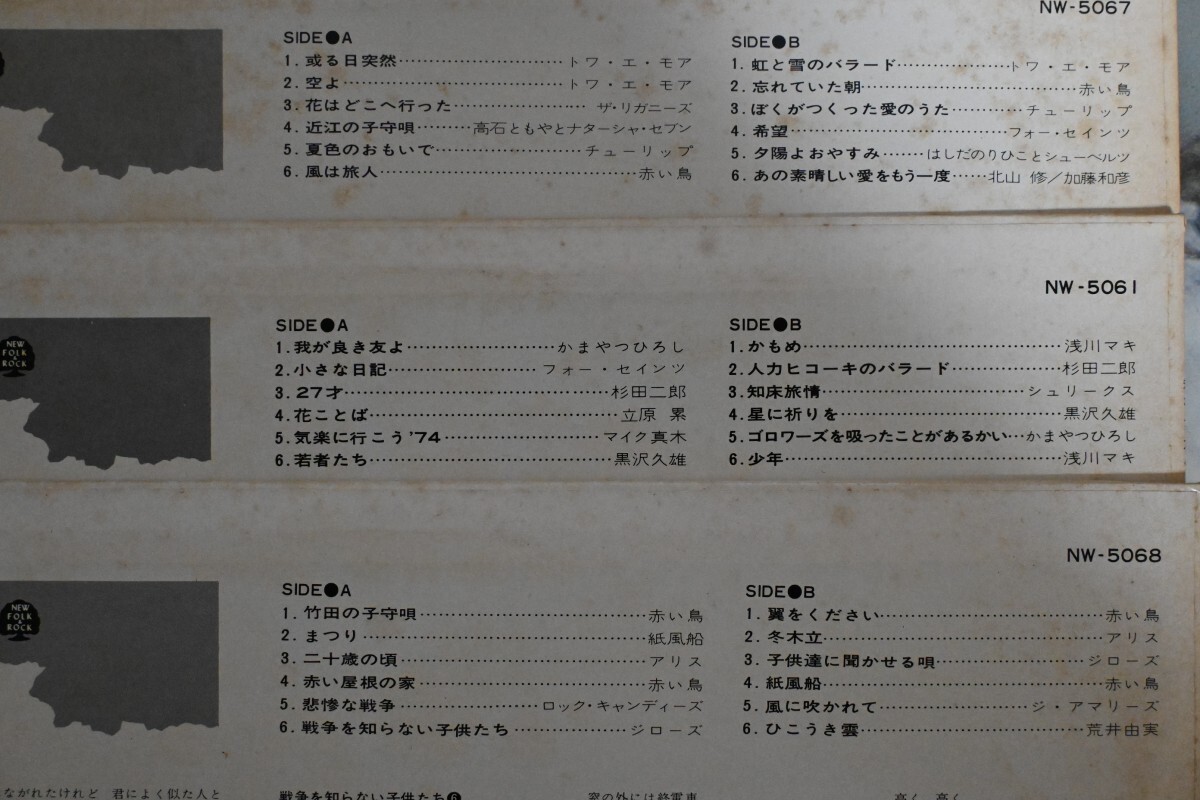 NW-5067
SIDE●A
1. 或る日突然………………………トワ・エ・モア
2. 空よ………………………………トワ・エ・モア
3. 花はどこへ行った…………………ザ・リガニーズ
4. 近江の子守唄………高石ともやとナターシャ・セブン
5. 夏色のおもいで……………………チューリップ
6. 風は旅人……………………………………赤い鳥
SIDE●B
1. 虹と雪のバラード………………トワ・エ・モア
2. 忘れていた朝………………………………赤い鳥
3. ぼくがつくった愛のうた…………チューリップ
4. 希望………………………………フォー・セインツ
5. 夕陽よおやすみ……はしだのりひことシューベルツ
6. あの素晴しい愛をもう一度……北山 修/加藤和彦
NW-5061
NEW FOLK & ROCK
SIDE●A
1. 我が良き友よ……………………かまやつひろし
2. 小さな日記……………………フォー・セインツ
3. 27才………………………………………杉田二郎
4. 花ことば……………………………………立原 累
5. 気楽に行こう'74……………………マイク真木
6. 若者たち…………………………………黒沢久雄
SIDE●B
1. かもめ……………………………………浅川マキ
2. 人力ヒコーキのバラード………………杉田二郎
3. 知床旅情……………………………シュリークス
4. 星に祈りを………………………………黒沢久雄
5. ゴロワーズを吸ったことがあるかい…かまやつひろし
6. 少年………………………………………浅川マキ
NW-5068
NEW FOLK & ROCK
SIDE●A
1. 竹田の子守唄………………………………赤い鳥
2. まつり………………………………………紙風船
3. 二十歳の頃…………………………………アリス
4. 赤い屋根の家………………………………赤い鳥
5. 悲惨な戦争…………………ロック・キャンディーズ
6. 戦争を知らない子供たち………………ジローズ
SIDE●B
1. 翼をください………………………………赤い鳥
2. 冬木立………………………………………アリス
3. 子供達に聞かせる唄……………………ジローズ
4. 紙風船………………………………………赤い鳥
5. 風に吹かれて……………………ジ・アマリーズ
6. ひこうき雲………………………………荒井由実
ながれたけれど 君によく似た人と
戦争を知らない子供たち❻
窓の外には終電車